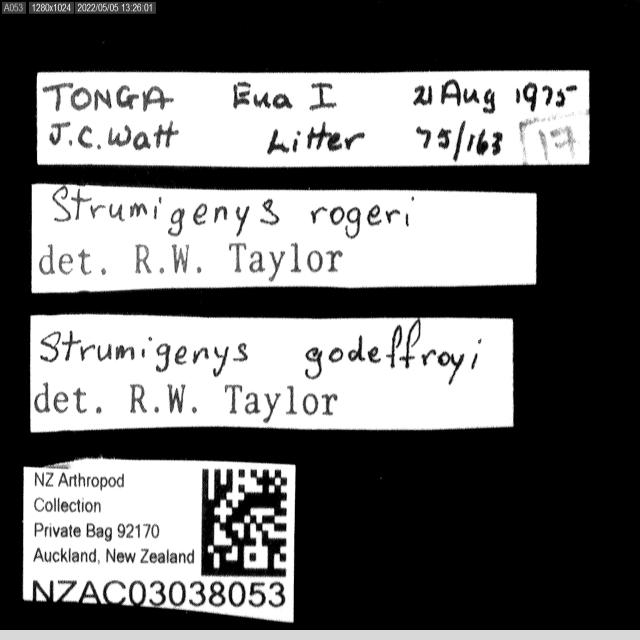 A053 1280x1024 2022/05/05 13:26:01
TONGA Eua I 21 Aug 1975
J.C. Watt Litter 75/163 17
Strumigenys rogeri
det. R.W. Taylor
Strumigenys godeffroyi
det. R.W. Taylor
NZ Arthropod
Collection
Private Bag 92170
Auckland, New Zealand
NZAC03038053